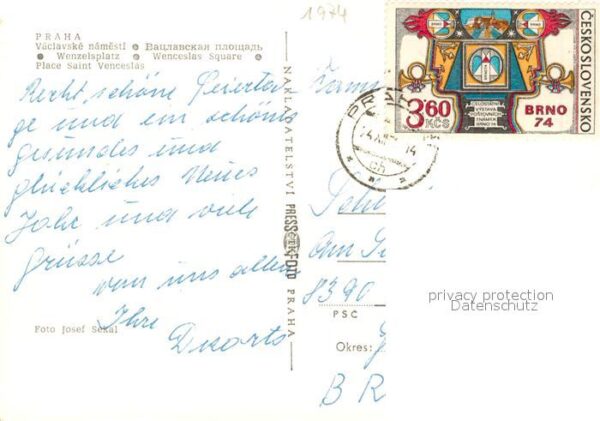 1974
PRAHA
Václavské náměstí • Вацлавская площадь
• Wenzelsplatz • Wenceslas Square •
Place Saint Venceslas
Recht schöne Feierta-
ge und ein schönes
gesundes und
glückliches Neues
Jahr und viele
Grüsse
von uns allen
Ihre
Dvorts
Foto Josef Sekal
NAKLADATELSTVÍ PRESSFOTO PRAHA
ČESKOSLOVENSKO
3,60
KČS
CELOSTÁTNÍ
VÝSTAVA
POŠTOVNÍCH
ZNÁMEK
BRNO 74
BRNO
74
Am
8390
PSČ
Okres:
BR
privacy protection
Datenschutz